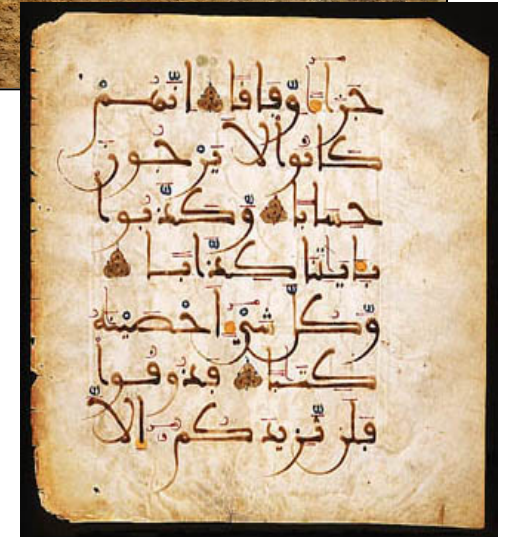 جَزَآءً وِّفَاقًا ۝ إِنَّهُمْ
كَانُوا لَا يَرْجُونَ
حِسَابًا ۝ وَكَذَّبُوا
بِـَٔايَٰتِنَا كِذَّابًا ۝
وَكُلَّ شَيْءٍ أَحْصَيْنَٰهُ
كِتَٰبًا ۝ فَذُوقُوا
فَلَن نَّزِيدَكُمْ إِلَّا